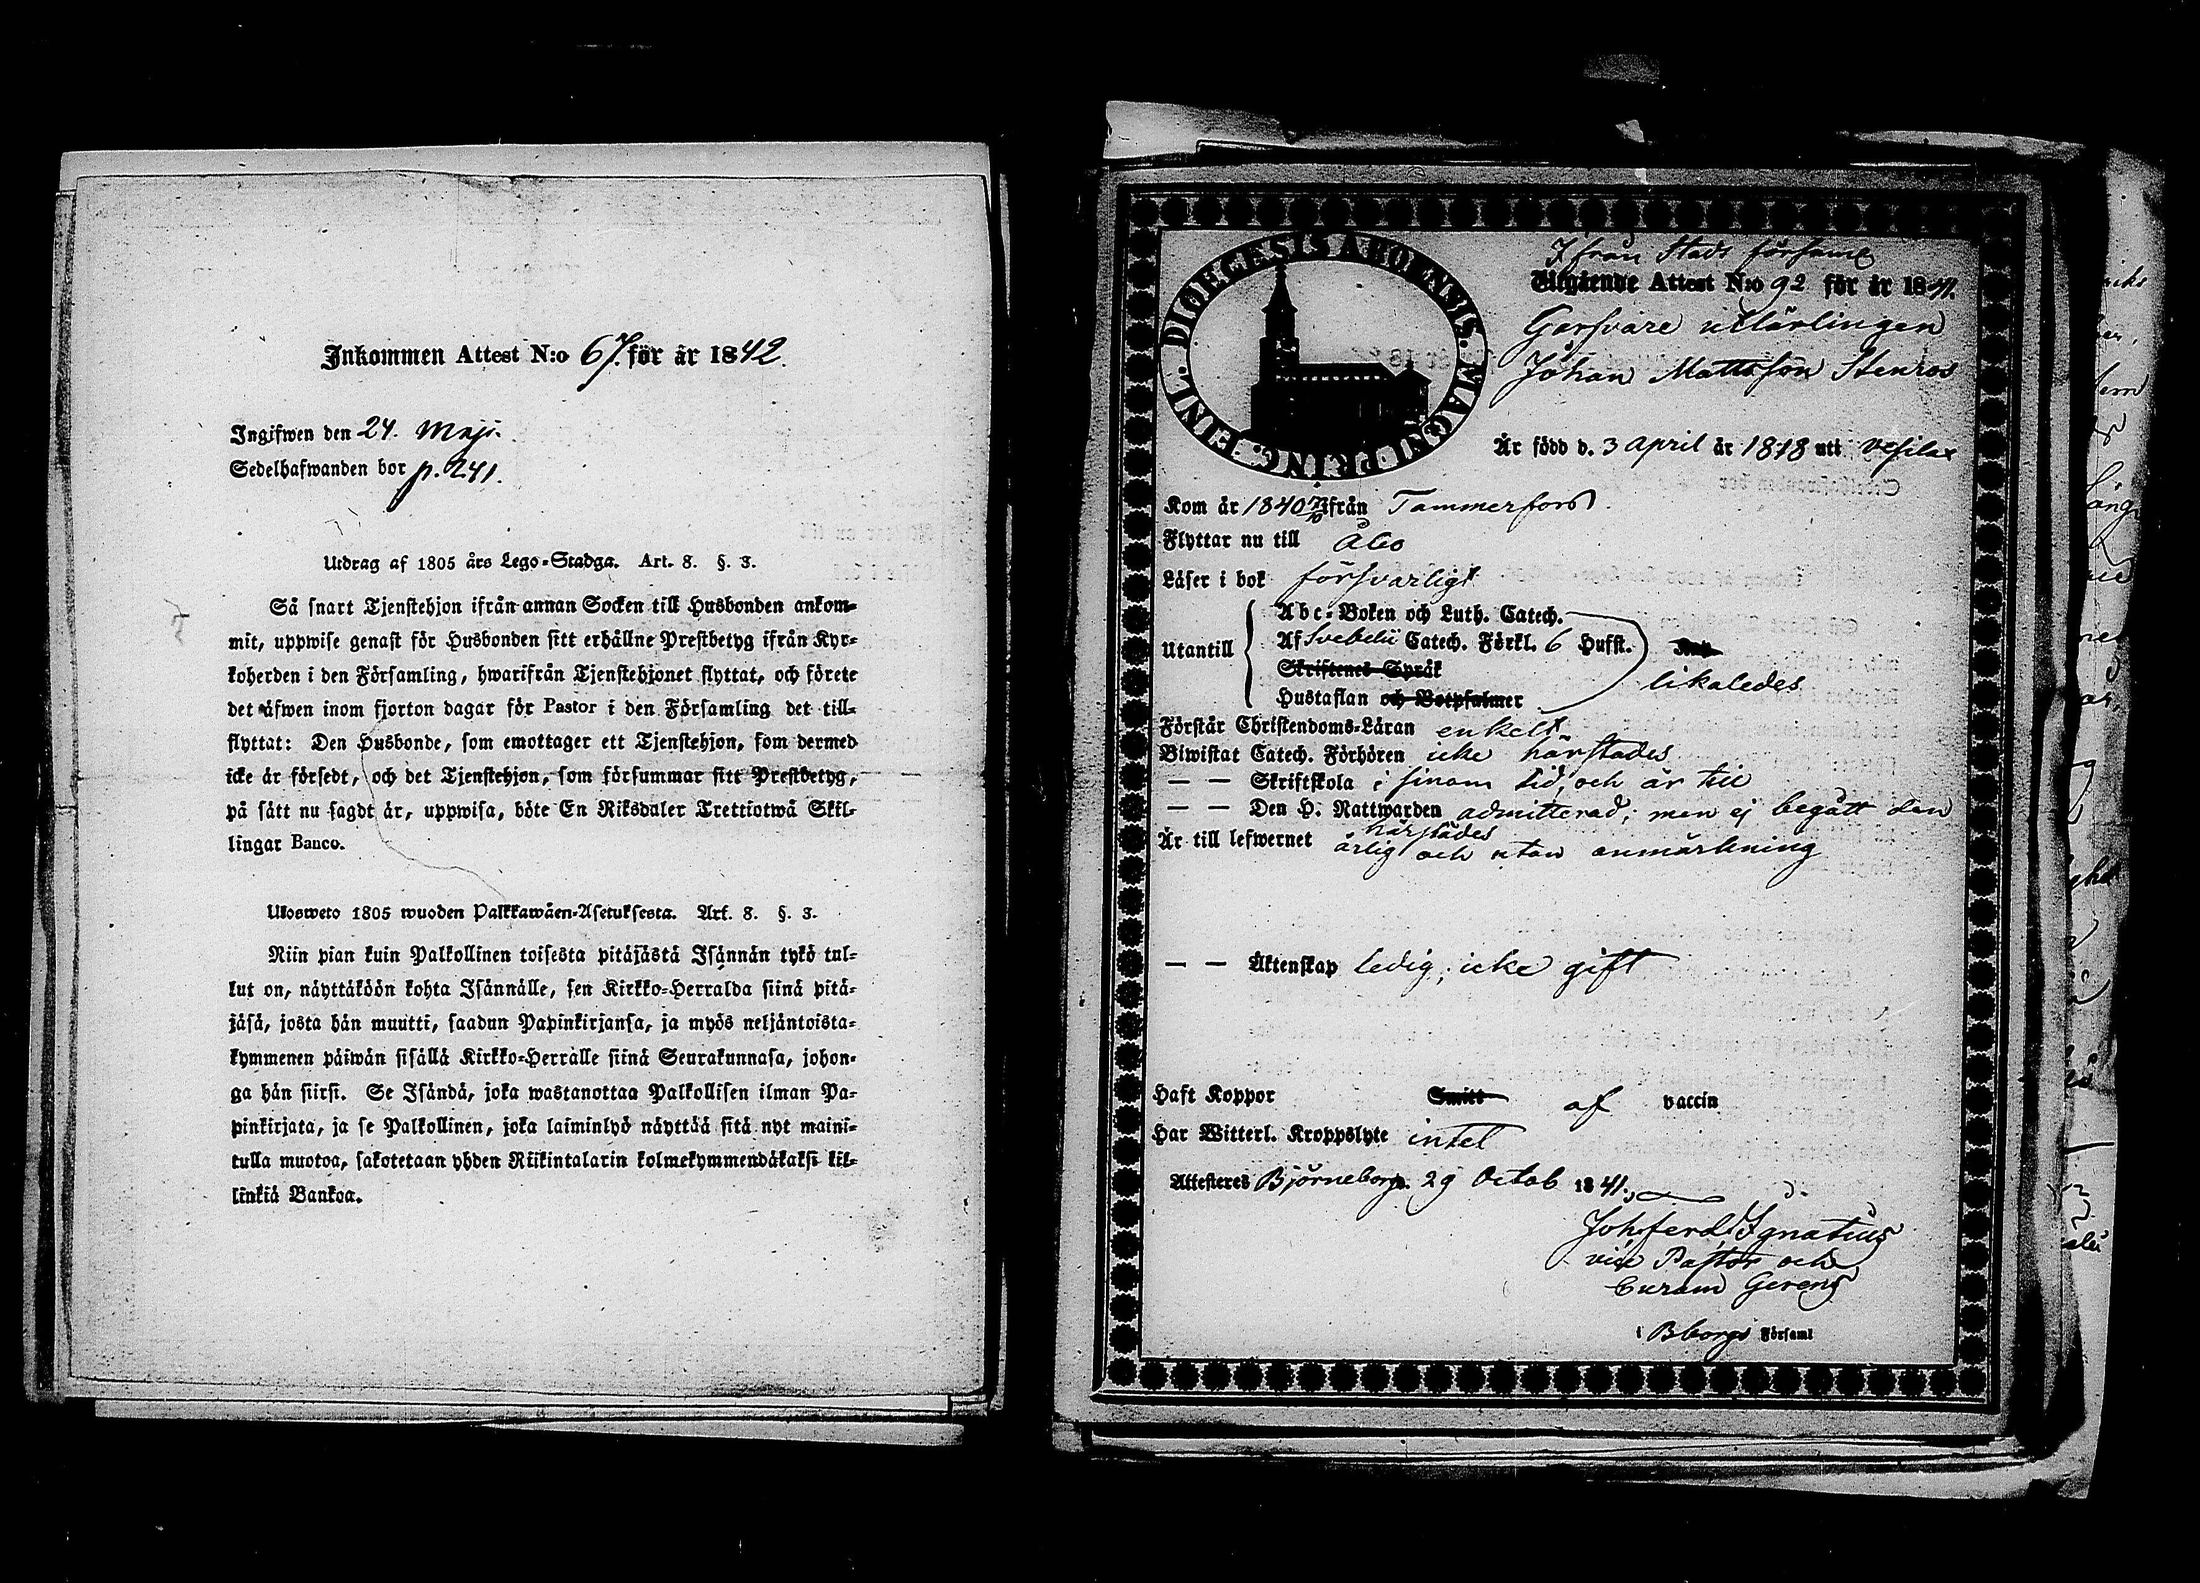 Inkommen Attest N:o 67. för år 1842.
Ingifwen den 24. Maji.
Sedelhafwanden bor p. 241.
Utdrag af 1805 års Lego-Stadga. Art. 8. §. 3.
Så snart Tjenstehjon ifrån annan Socken till Husbonden ankom-
mit, uppwise genast för Husbonden sitt erhållne Prestbetyg ifrån Kyr-
koherden i den Församling, hwarifrån Tjenstehjonet flyttat, och förete
det äfwen inom fjorton dagar för Pastor i den Församling det till-
flyttat: Den Husbonde, som emottager ett Tjenstehjon, som dermed
icke är försedt, och det Tjenstehjon, som försummar sitt Prestbetyg,
på sätt nu sagdt är, uppwisa, böte En Riksdaler Trettiotwå Skil-
lingar Banco.
Ulosweto 1805 wuoden Palkkawäen-Asetuksesta. Art. 8. §. 3.
Niin pian kuin Palkollinen toisesta pitäjästä Isännän tykö tul-
lut on, näyttäköön kohta Isännälle, sen Kirkko-Herralda siinä pitä-
jäsä, josta hän muutti, saadun Papinkirjansa, ja myös neljäntoista-
kymmenen päiwän sisällä Kirkko-Herralle siinä Seurakunnasa, johon-
ga hän siirsi. Se Isändä, joka wastanottaa Palkollisen ilman Pa-
pinkirjata, ja se Palkollinen, joka laiminlyö näyttää sitä nyt maini-
tulla muotoa, sakotetaan yhden Riikintalarin kolmekymmendäkaksi kil-
linkiä Bankoa.
DIOECESIS ABOENSIS. MAGNI PRINC. FINL.
Ifrån Stads församl
Utgående Attest N:o 92 för år 1841.
Garfvare utlärlingen
Johan Mattsson Stenros
Är född d. 3 April år 1818 uti Vesilax
Kom år 1840 från Tammerfors.
Flyttar nu till Åbo
Läser i bok försvarligt
Utantill
Abc-Boken och Luth. Catech.
Af Svebelii Catech. Förkl. 6 Hufst.
Skriftenes Språk
likaledes
Hustaflan och Botpsalmer
Förstår Christendoms-Läran enkelt
Biwistat Catech. Förhören icke härstädes
— — Skriftskola i sinom tid, och är till
— — Den H. Nattwarden admitterad; men ej begått den
härstädes
Är till lefwernet ärlig och utan anmärkning
— — Äktenskap ledig, icke gift
Haft Koppor Smitt af vaccin
Har Witterl. Kroppslyte intet
Attesteres Björneborg d. 29 Octob 1841.
Joh Ferd Ignatius
vice Pastor och
Curam Gerens
i Bborgs Församl